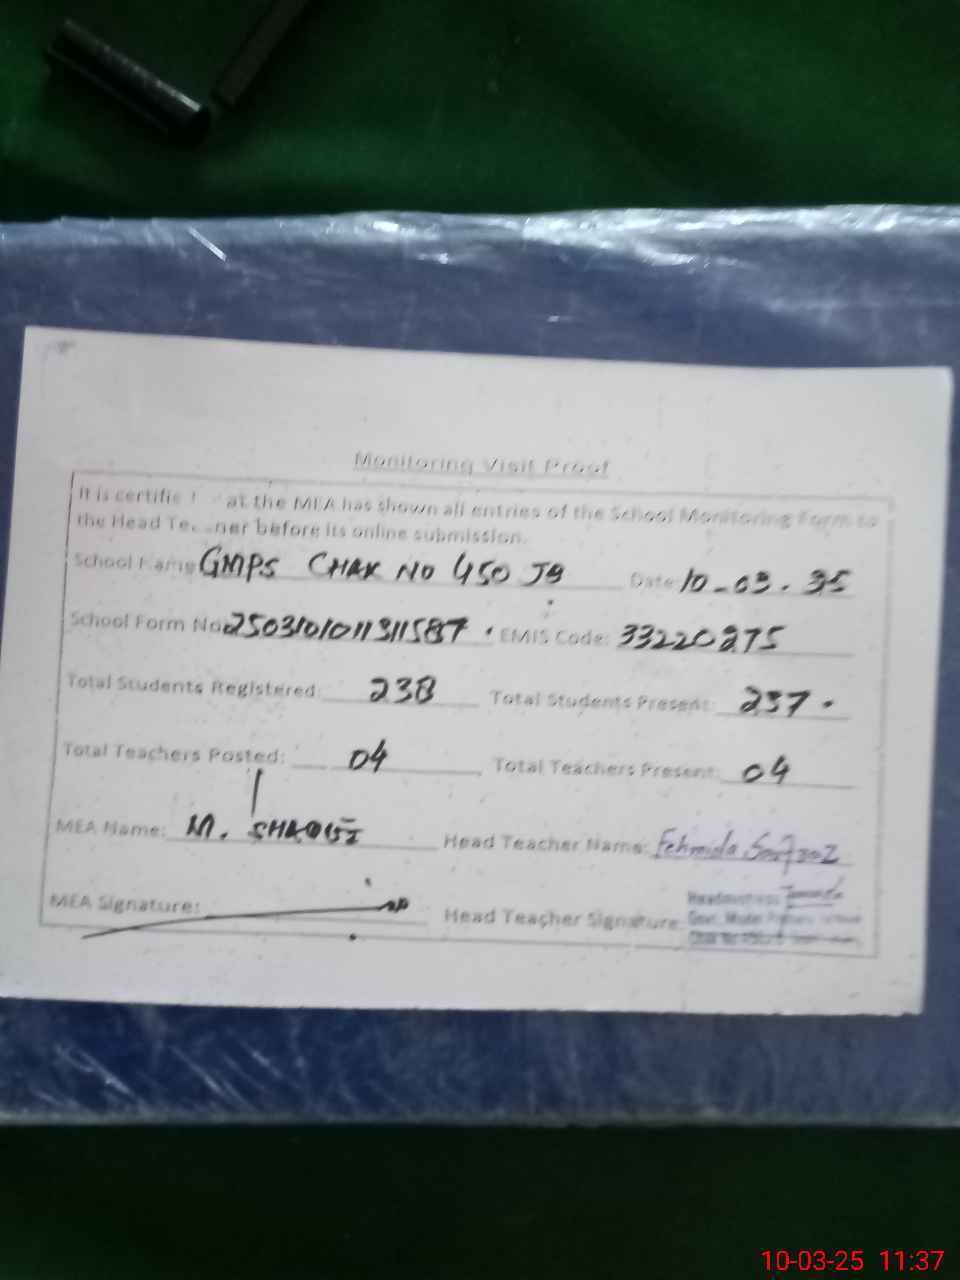 Monitoring Visit Proof
It is certifie at the MEA has shown all entries of the School Monitoring Form to
the Head Te ner before its online submission.
School Name GMPS CHAK NO 450 JB Date: 10-03-25
School Form No. 250310101131587 EMIS Code: 33220275
Total Students Registered: 238 Total Students Present: 237
Total Teachers Posted: 04 Total Teachers Present: 04
MEA Name: M. Head Teacher Name: Fehmida
MEA Signature: Head Teacher Signature
Headmistress
Govt. Model Primary School
Chak No
10-03-25 11:37